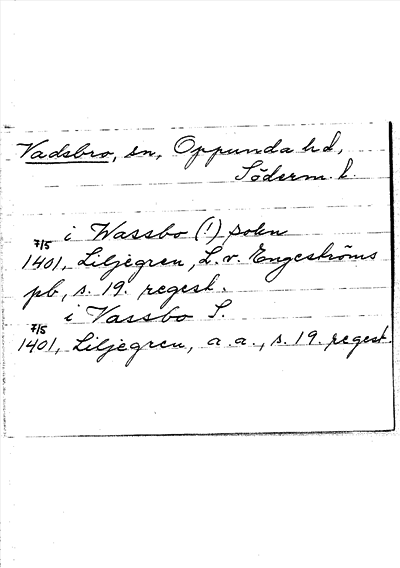 Vadsbro, sn, Oppunda hd,
Söderm. l.
i Wassbo (!) sokn
7/5 1401, Liljegren, L. v. Engeströms
pb, s. 19. regest.
i Vassbo S.
7/5 1401, Liljegren, a. a., s. 19. regest.